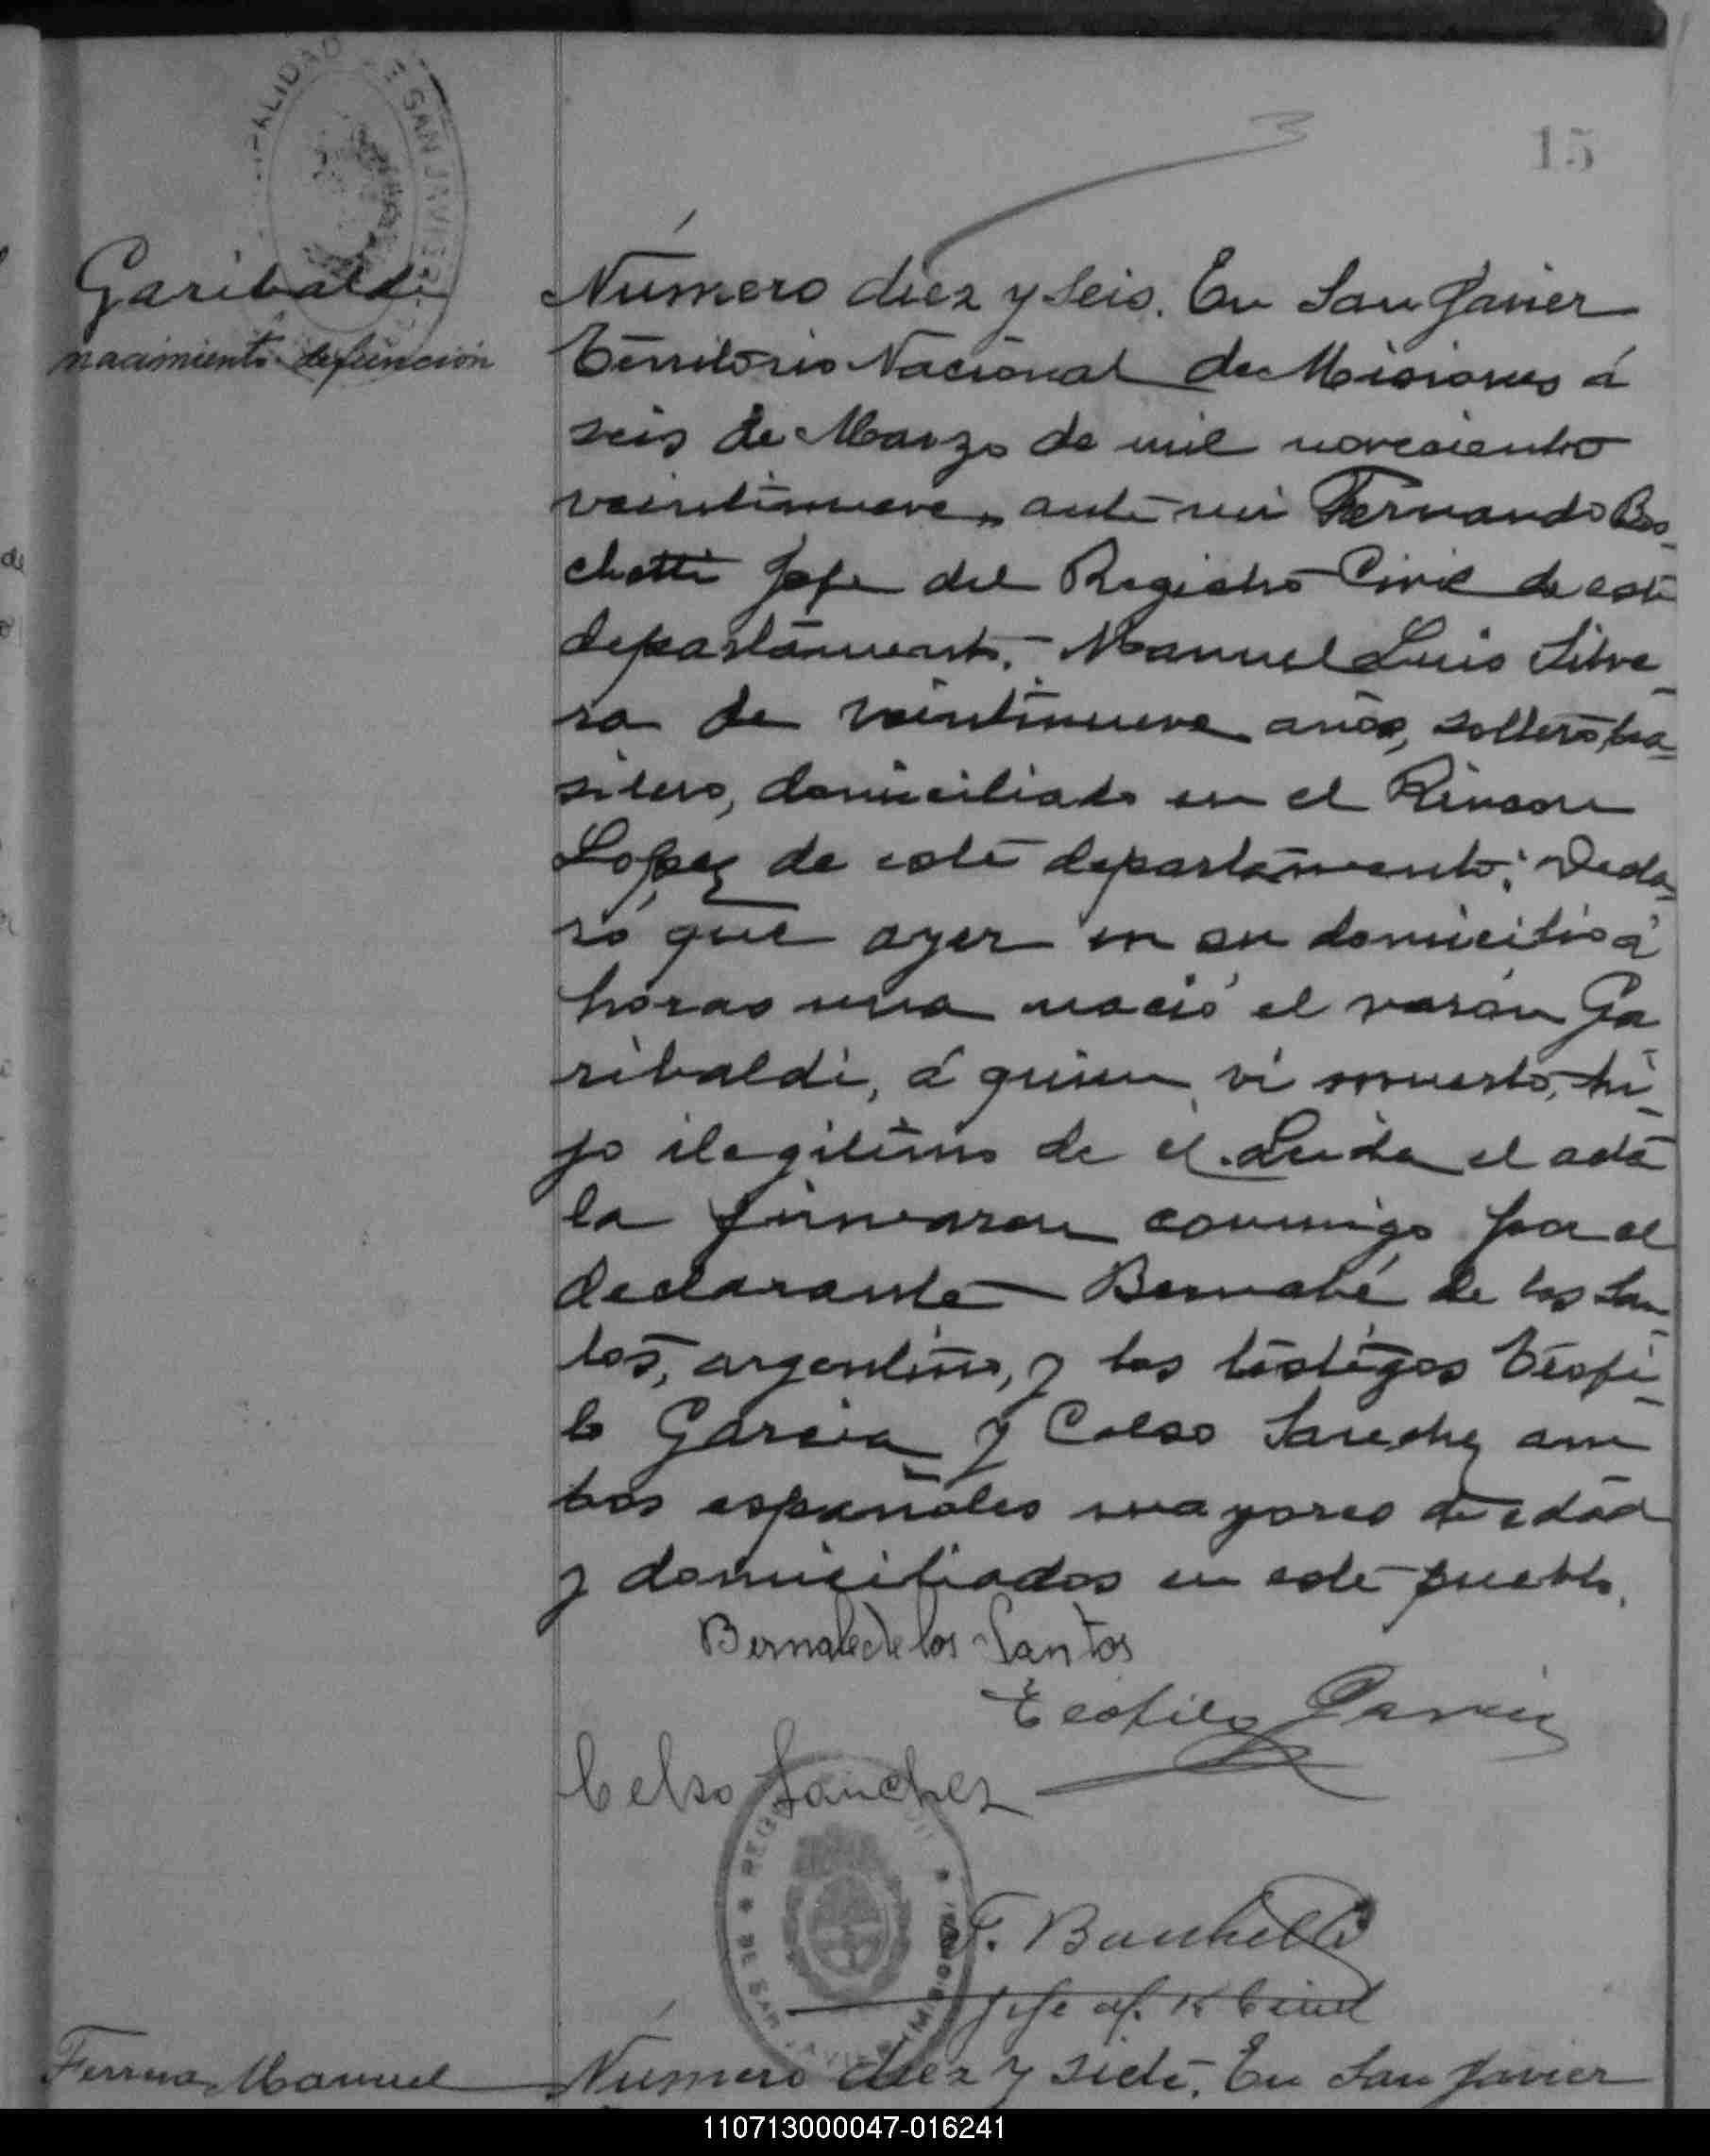 15
3
Garibaldi
nacimiento defunción
Número diez y seis. En San Javier
Territorio Nacional de Misiones á
seis de Marzo de mil novecientos
veintinueve, ante mi Fernando
chetti Jefe del Registro Civil de este
departamento.- Manuel Luis Silve-
ra de veintinueve años, soltero, bra-
silero, domiciliado en el Rincon
Lopez de este departamento; Decla-
ró que ayer en su domicilio á
horas una nació el varón Ga-
ribaldi, á quien vi muerto, hi-
jo ilegitimo de el. Leida el acta
la firmaron conmigo por el
declarante Bernabé de los San-
tos, argentino, y los testigos Teofi-
lo Garcia y Celso Sanchez am
bos españoles mayores de edad
y domiciliados en este pueblo.
Bernabe de los Santos
Teofilo Garcia
Celso Sanchez
F. Banchetti
Jefe R Civil
Ferreira Manuel
Número diez y siete. En San Javier
110713000047-016241